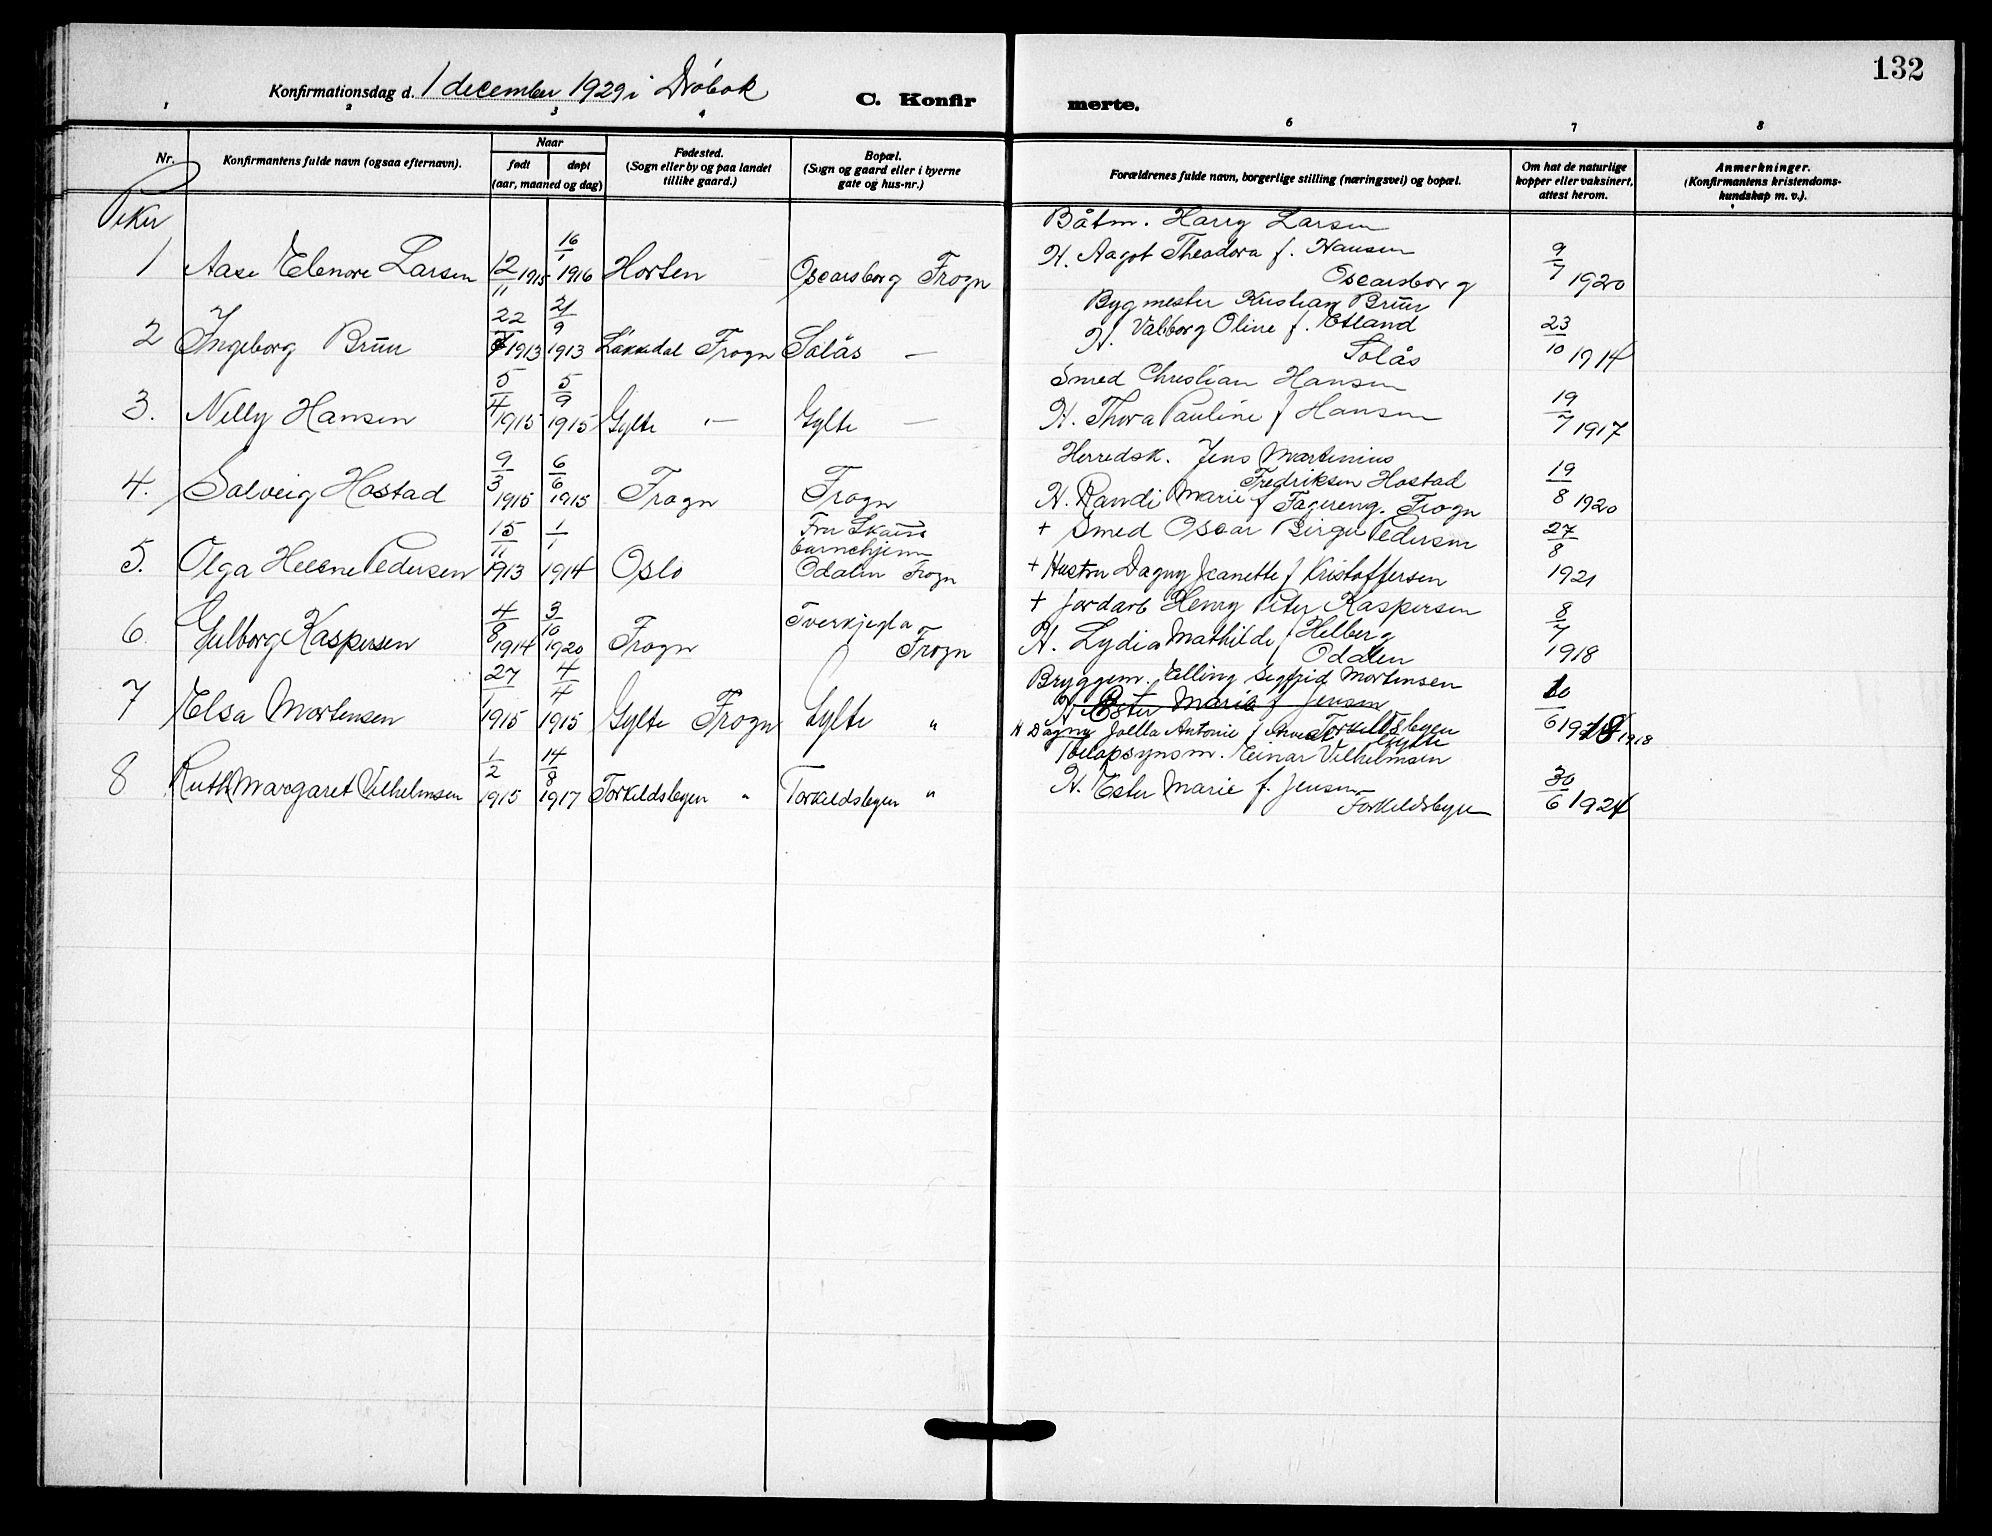 132
Konfirmationsdag d. 1 december 1929 i Dröbak
C. Konfirmerte.
1 2 3 4 6 7 8
Nr.
Konfirmantens fulde navn (ogsaa efternavn).
Naar
født
døpt
(aar, maaned og dag)
Fødested.
(Sogn eller by og paa landet
tillike gaard.)
Bopæl.
(Sogn og gaard eller i byerne
gate og hus-nr.)
Forældrenes fulde navn, borgerlige stilling (næringsvei) og bopæl.
Om hat de naturlige
kopper eller vaksinert,
attest herom.
Anmerkninger.
(Konfirmantens kristendoms-
kundskap m. v.).
Piker
1 Aase Elenore Larsen 12/11 1915 16/1 1916 Horten Oscarsborg Frogn
Båtm. Harry Larsen
H. Aagot Theodora f. Hansen
Oscarsborg
9/7 1920
2 Ingeborg Bruun 22/ 1913 21/9 1913 Lökkedal Frogn Solås —
Bygmester Kristian Bruun
H. Valborg Oline f. Etland
Solås
23/10 1914
3. Nelly Hansen 5/4 1915 5/9 1915 Gylte — Gylte —
Smed Christian Hansen
H. Thora Pauline f Hansen
19/7 1917
4. Solveig Hostad 9/3 1915 6/6 1915 Frogn Frogn
Herredsk. Jens Martinius
Fredriksen Hostad
H. Randi Marie f Fagereng. Frogn
19/8 1920
5. Olga Helene Pedersen 15/11 1913 1/1 1914 Oslo
Fru
barnehjem
Odalen Frogn
+ Smed Oscar Birger Pedersen
+ Hustru Dagny Jeanette f Kristoffersen
27/8
1921
6. Gulborg Kaspersen 4/8 1914 3/10 1920 Frogn
Tverkjegla
Frogn
+ Jordarb Henry Peter Kaspersen
H. Lydia Mathilde f Helberg
Odalen
8/7
1918
7 Elsa Mortensen 27/1 1915 4/4 1915 Gylte Frogn Gylte "
Bryggem. Elling Sigfrid Mortensen
H Ester Marie f Jensen
Torkildsbyen
H Dagny Antonie f
Gylte
/6 1918
8 Ruth Margaret Vilhelmsen 1/2 1915 14/8 1917 Torkildsbyen " Torkildsbyen "
Toldopsynsm. Einar Vilhelmsen
H. Ester Marie f. Jensen
Torkildsbyen
30/6 1924